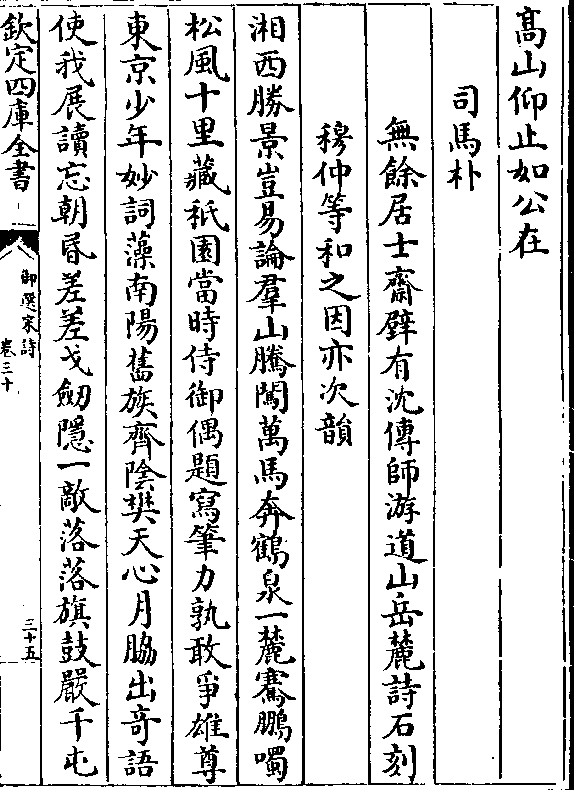 髙山仰止如公在
司馬朴
無餘居士齋壁有沈傳師游道山岳麓詩石刻
穆仲等和之因亦次韻
湘西勝景豈易論羣山騰闖萬馬奔鶴泉一麓騫鵬噣
松風十里藏秖園當時侍御偶題寫筆力孰敢爭雄尊
東京少年妙詞藻南陽舊族齊陰樊天心月脇出竒語
使我展讀忘朝昬差差戈劒隱一敵落落旗鼓嚴千屯
欽定四庫全書
御選宋詩
卷三十
三十五